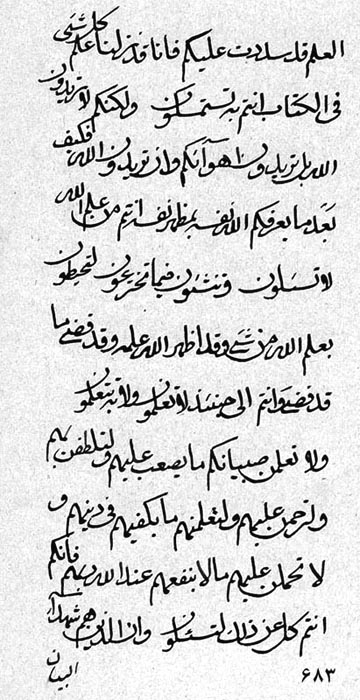 العلم قد سددت عليكم فانا قد نزلنا علم كل شئ
فى الكتاب انتم به تستمسكون ولكنكم لا تريدون
الله بل تريدون اهوآئكم وان تريدون الله فكيف
بعد ما يعرفكم الله نفسه بمظهر نفسه انتم من علم الله
لا تسئلون وتنشئون فيما تخترعون لتحيطون
بعلم الله من شئ وقد اظهر الله علمه وقد قضى ما
قد قضى وانتم الى حينئذ لا تعلمون ولا به تتعلمون
ولا تعلمن صبيانكم ما يصعب عليهم ولتلطفن بهم
ولترحمن عليهم ولتعلمنهم ما يكفيهم فى دينهم و
لا تحملن عليهم ما لا ينفعهم عند الله ربهم فانكم
انتم كل عن ذلك لتسئلون وان الذين هم شهدآء
البيان
٦٨٣